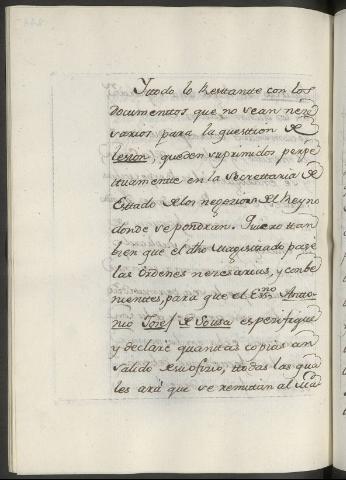 Y todo lo Restante con los
documentos que no sean nece
sarios para la question de
lesion, queden suprimidos perpe
tuamente en la Secrettaria de
Estado de los negozios del Reyno
donde se pondran. Quiero tan
bien que el dho Magistrado pase
las Ordenes nezesarias, y conbe
nientes, para que el Essno Anto
nio Josef de Sousa espezifique
y declare quantas copias an
salido de su ofizio, todas las qua
les ará que se remittan al Ma